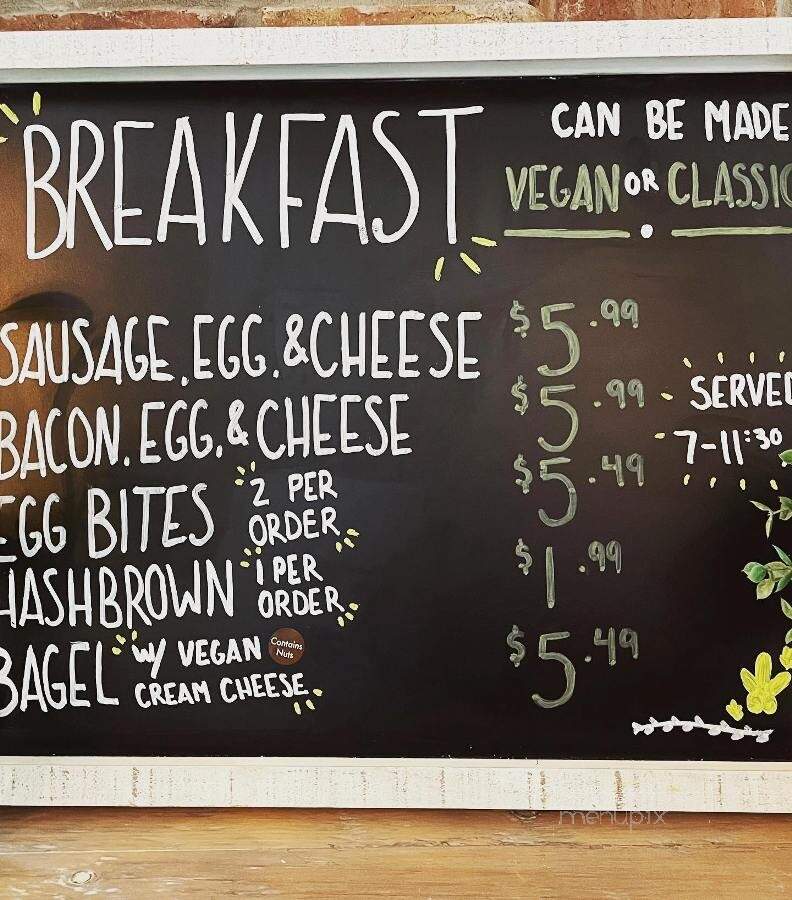 BREAKFAST
CAN BE MADE
VEGAN OR CLASSIC
SAUSAGE, EGG, & CHEESE $5.99
BACON, EGG, & CHEESE $5.99
EGG BITES 2 PER ORDER $5.49
HASHBROWN 1 PER ORDER $1.99
BAGEL W/ VEGAN CREAM CHEESE $5.49
Contains Nuts
SERVED
7-11:30
menupix